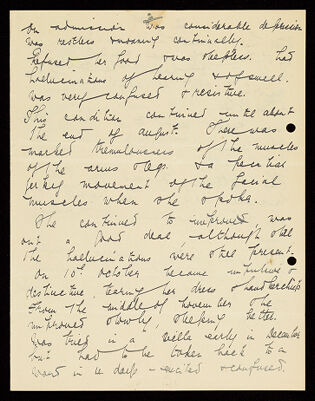 On admission was considerable depression
was restless moaning continually.
Refused her food & was sleepless. had
hallucinations of hearing & of smell.
Was very confused & resistive.
This condition continued until about
the end of august. There was
marked tremulousness of the muscles
of the arms & legs. & a peculiar
jerky movement of the facial
muscles when she spoke.
She continued to improve & was
out a good deal, although still
the hallucinations were still present.
On 10th October became impulsive &
destructive, tearing her dress & handkerchiefs
From the middle of november she
improved slowly, sleeping better.
Was tried in a villa early in December
but had to be taken back to a
ward in 12 days - excited & confused.